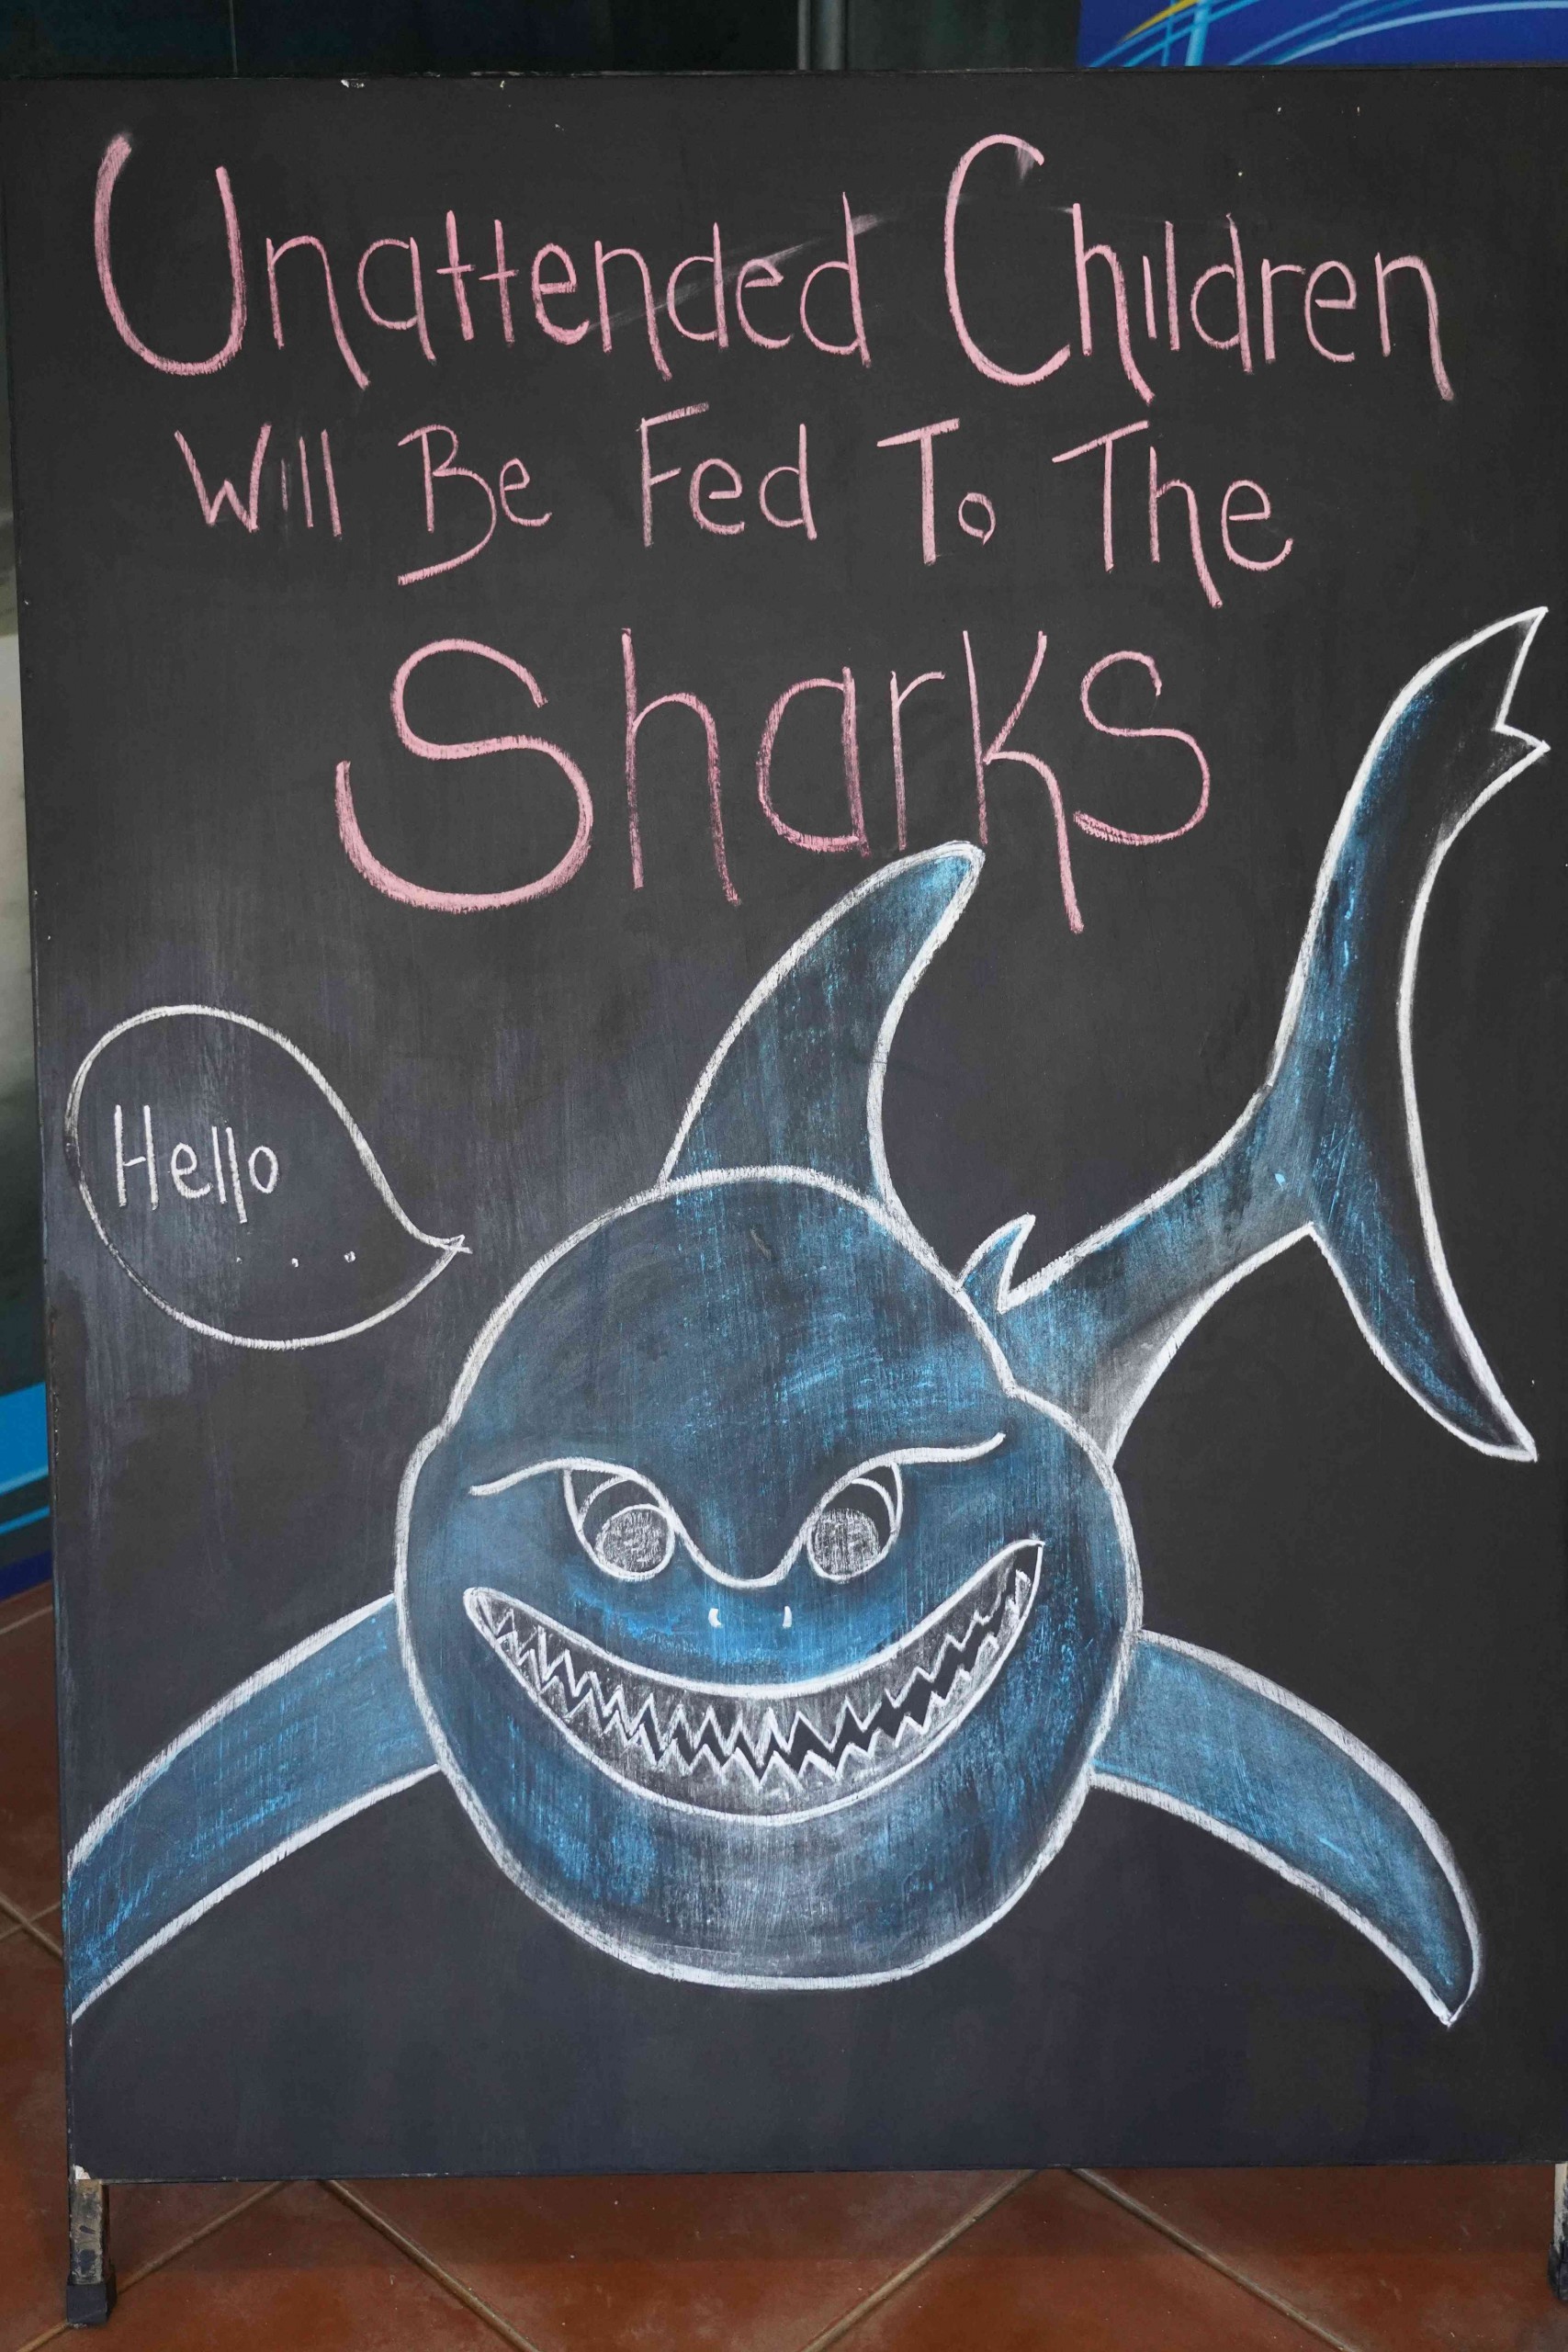 Unattended Children
Will Be Fed To The
Sharks
Hello
...